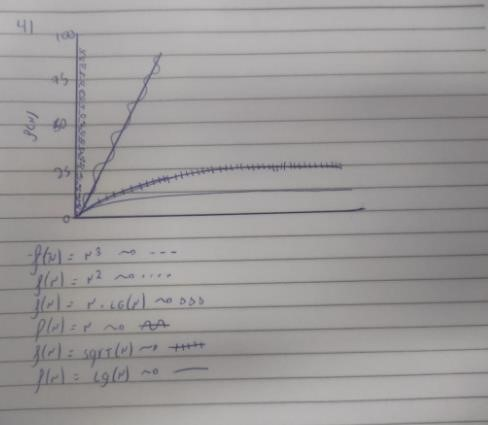 4)
100
75
f(N)
50
25
0
f(N) = N³ ~ ---
f(N) = N² ~ ····
f(N) = N·LG(N) ~ ▷▷▷
f(N) = N ~
f(N) = SQRT(N) ~ +++++
f(N) = LG(N) ~ —